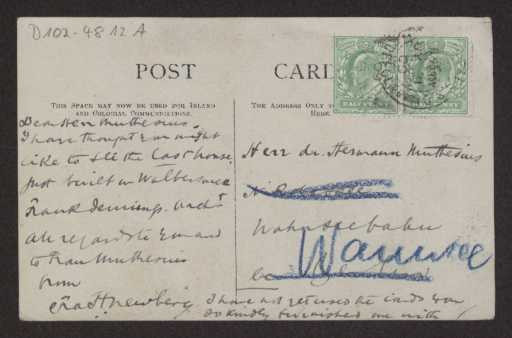 D102-4812A
POST CARD
THIS SPACE MAY NOW BE USED FOR INLAND
AND COLONIAL COMMUNICATIONS.
THE ADDRESS ONLY TO
HERE.
HALFPENNY
Dear Herr Muthesius.
I have thought you might
like to see the last house
just built in Walberswick
Frank Jennings. Archt
All regards to you and
to Frau Muthesius
from
Fra H Newbery
I have not returned the cards you
so kindly furnished me with
Herr Dr. Hermann Muthesius
Wannseebahn
Wannsee